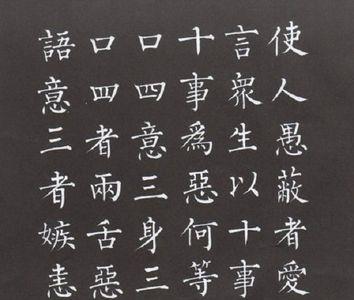 使人愚蔽者愛
言眾生以十事
十事為惡何等
口四意三身三
口四者兩舌惡
語意三者嫉恚